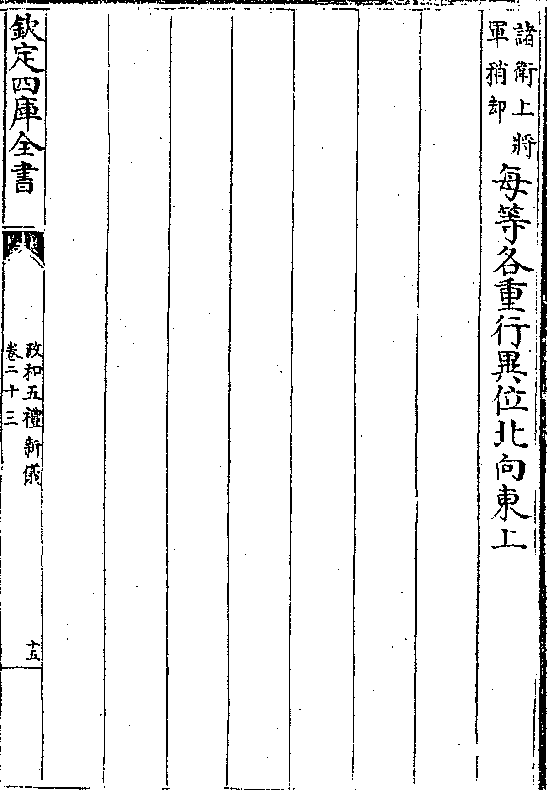 諸衛上將
軍稍却
每等各重行異位北向東上
欽定四庫全書
政和五禮新儀
卷二十三
十五